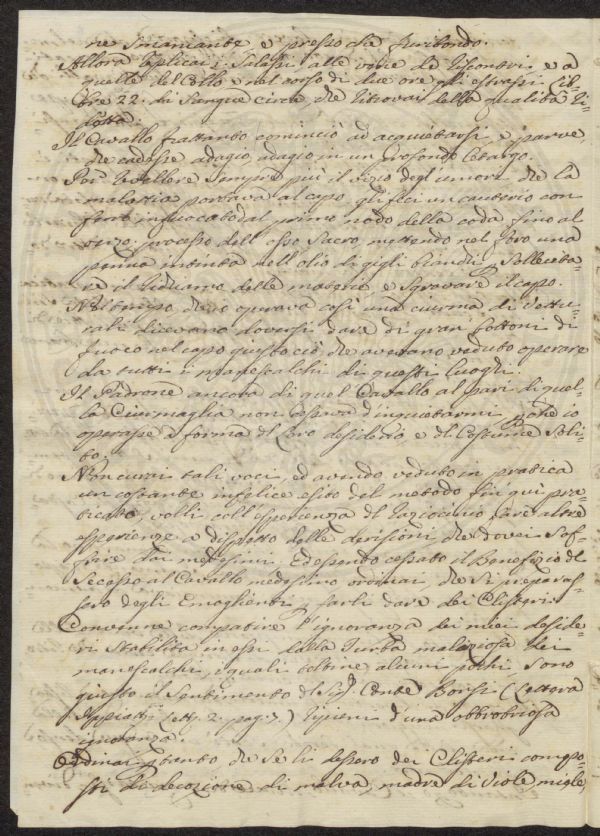 re smaniante e presso che furibondo.
Allora replicai i Salassi alle vene de
quelle del Collo e nel corso di due ore gli estrassi lib=
bre 22. di Sangue circa che ritrovai della qualità ri=
dotta.
Il Cavallo frattanto cominciò ad acquietarsi e parve,
che cadesse adagio, adagio in un profondo letargo.
Per revellere sempre più il vizio degl'umori che la
malattia portava al capo gli feci un cauterio con
ferro infuocato dal primo nodo della coda fino al
terzo processo dell'osso Sacro, mettendo nel foro una
penna intinta nell'olio di gigli bianchi p. sollecita=
re il delle materie e sgravare il capo.
Nel tempo che io operava così una ciurma di Vettu=
rali dicevano doversi dare di gran bottoni di
fuoco nel capo questo ciò che avevano veduto operare
da tutti i maniscalchi di questi luoghi.
Il Padrone ancora di quel Cavallo al pari di quel=
la Ciurmaglia non cessava d'inquietarmi, poichè io
operasse a forma del loro desiderio e del Costume Soli=
to.
Non curai tali voci, ed avendo veduto in pratica
un costante infelice esito del metodo fin quì pra=
ticato, volli coll'esperienza del raziocinio fare altre
esperienze a dispetto delle derisioni che dovei sof=
frire dai medesimi. Ed essendo cessato il Benefizio di
Secesso al Cavallo medesimo ordinai, che si preparas=
sero degli Emollienti p. farli dare dei Clisteri.
Convenne compatire l'ignoranza dei miei deside=
ri stabilita in essi dalla Turba maliziosa dei
maniscalchi, i quali toltine alcuni pochi sono
giusto il Sentimento del Sig. Conte Bonsi (Lettera
Ippiatri Lett. 2. pag. 7.) ripieni d'una obbrobriosa
ignoranza.
Ordinai p. tanto che se li dessero dei Clisteri compo=
sti di decozione di malva, madre di Viole, migle,